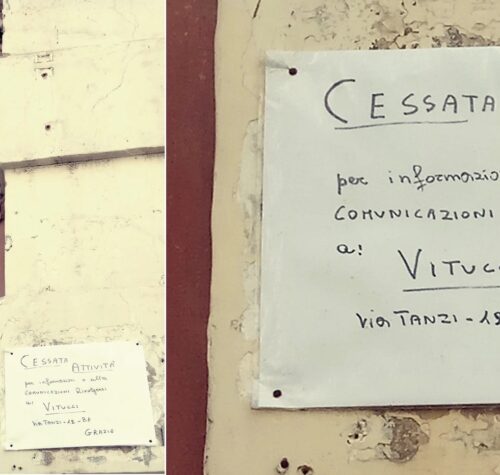 CESSATA
ATTIVITÀ
per informazioni o altre
COMUNICAZIONI Rivolgersi
a:
VITUCCI
Via TANZI-19-BA
GRAZIE
CESSATA
per informazio
COMUNICAZIONI
a:
VITUCC
Via TANZI-19